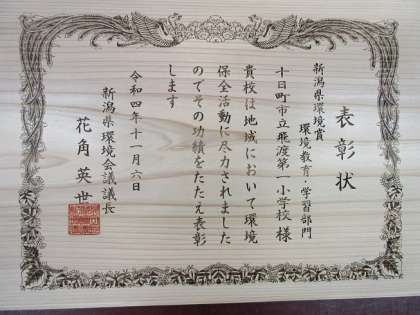 表彰状
新潟県環境賞
環境教育・学習部門
十日町市立飛渡第一小学校 様
貴校は地域において環境
保全活動に尽力されました
のでその功績をたたえ表彰
します
令和四年十一月六日
新潟県環境会議議長
花角英世